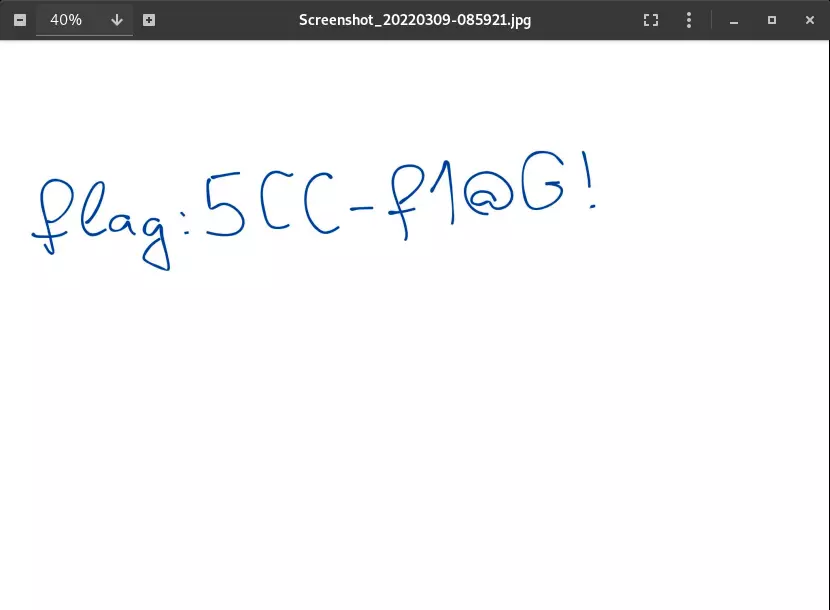 40%
Screenshot_20220309-085921.jpg
flag:5CC-f1@G!